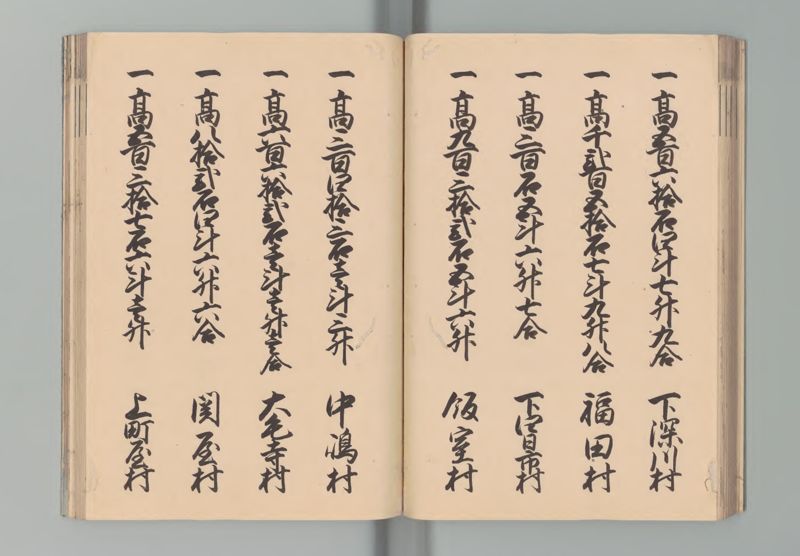 一高五百六拾石四斗七升九合 下深川村
一高千弐百五拾石七斗九升八合 福田村
一高三百石五斗六升七合 下四日市村
一高九百三拾弐石五斗六升 飯室村
一高三百四拾三石壱斗三升 中嶋村
一高六百六拾弐石壱斗壱升壱合 大毛寺村
一高八拾弐石四斗六升六合 関屋村
一高五百三拾七石六斗壱升 上町屋村